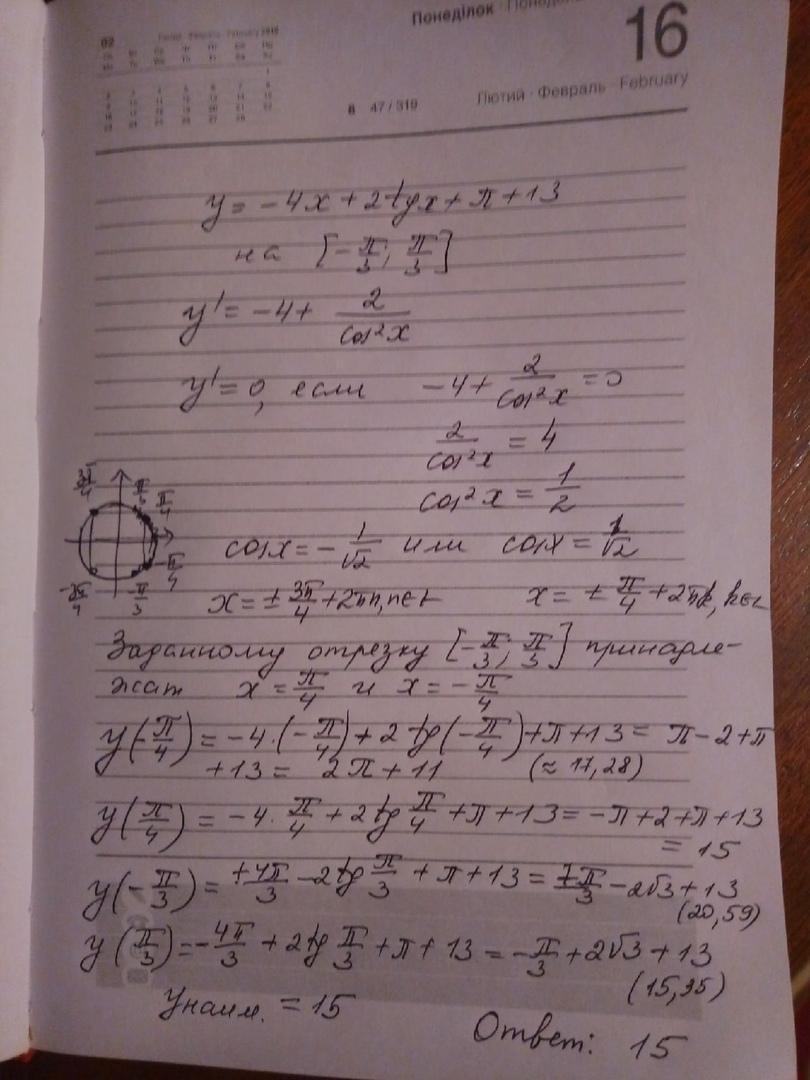 Понеділок · Понеде
16
02 Лютий · Февраль · February 2015
8 47/319
Лютий · Февраль · February
y = -4x + 2tgx + π + 13
на [-π/3; π/3]
y' = -4 + 2/cos²x
y' = 0, если -4 + 2/cos²x = 0
2/cos²x = 4
cos²x = 1/2
3π/4 π/3 π/4
cosx = -1/√2 или cosx = 1/√2
-π/4
-3π/4 -π/3
x = ± 3π/4 + 2πn, n∈Z x = ± π/4 + 2πk, k∈Z
Заданному отрезку [-π/3; π/3] принадле-
жат x = π/4 и x = -π/4
y(-π/4) = -4·(-π/4) + 2tg(-π/4) + π + 13 = π - 2 + π
+ 13 = 2π + 11 (≈ 17,28)
y(π/4) = -4·π/4 + 2tg π/4 + π + 13 = -π + 2 + π + 13
= 15
y(-π/3) = +4π/3 - 2tg π/3 + π + 13 = 7π/3 - 2√3 + 13
(20,59)
y(π/3) = -4π/3 + 2tg π/3 + π + 13 = -π/3 + 2√3 + 13
(15,35)
Yнаим. = 15
Ответ: 15